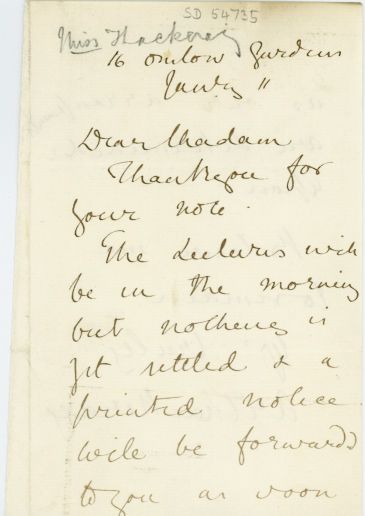 SD 54735
Miss Thackeray
16 Onslow Gardens
Jany 11
Dear Madam
Thank you for
your note.
The Lectures will
be in the morning
but nothing is
yet settled & a
printed notice
will be forwarded
to you as soon